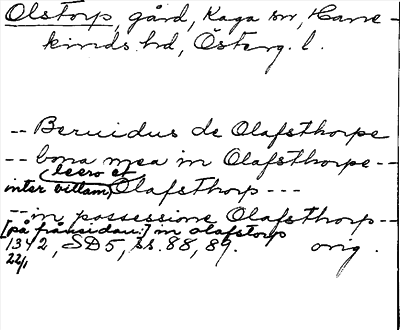 Olstorp, gård, Kaga sn, Hane-
kinds hd, Österg. l.
-- Beruidus de Olafsthorpe
-- bona mea in Olafsthorpe --
leero et
inter villam, Olafsthorp ---
-- in possessione Olafsthorp --
[på frånsidan:] in olafstorp
1342, SD5, ss. 88, 89. orig.
22/1